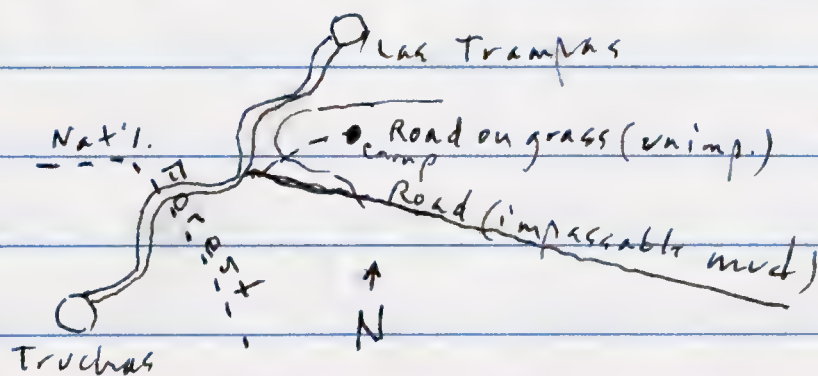 Las Trampas
Nat'l.
Forest
Road on grass (unimp.)
camp
Road (impassable mud)
N
Truchas